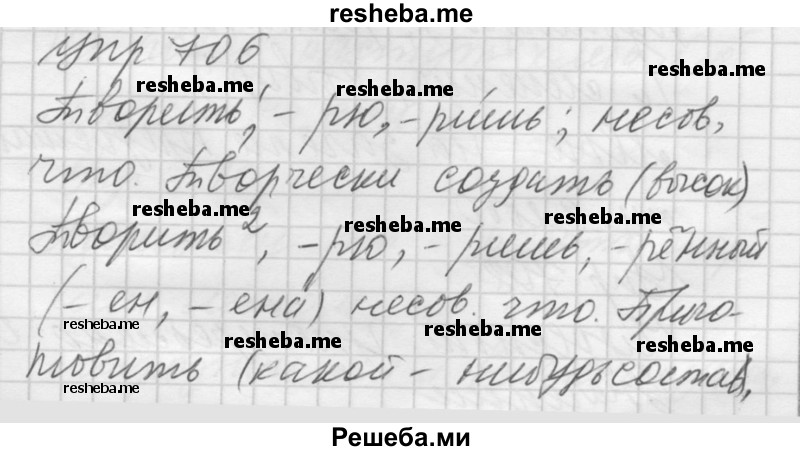 resheba.me
упр 706
resheba.me
resheba.me
resheba.me
Творить¹, -рю, -ришь; несов,
что. Творчески создать (высок)
resheba.me
resheba.me
resheba.me
Творить², -рю, -ришь, -рённый
(-ен, -ена) несов. что. Приго-
resheba.me
resheba.me
resheba.me
resheba.me
товить (какой-нибудь состав),
resheba.me
Решеба.ми